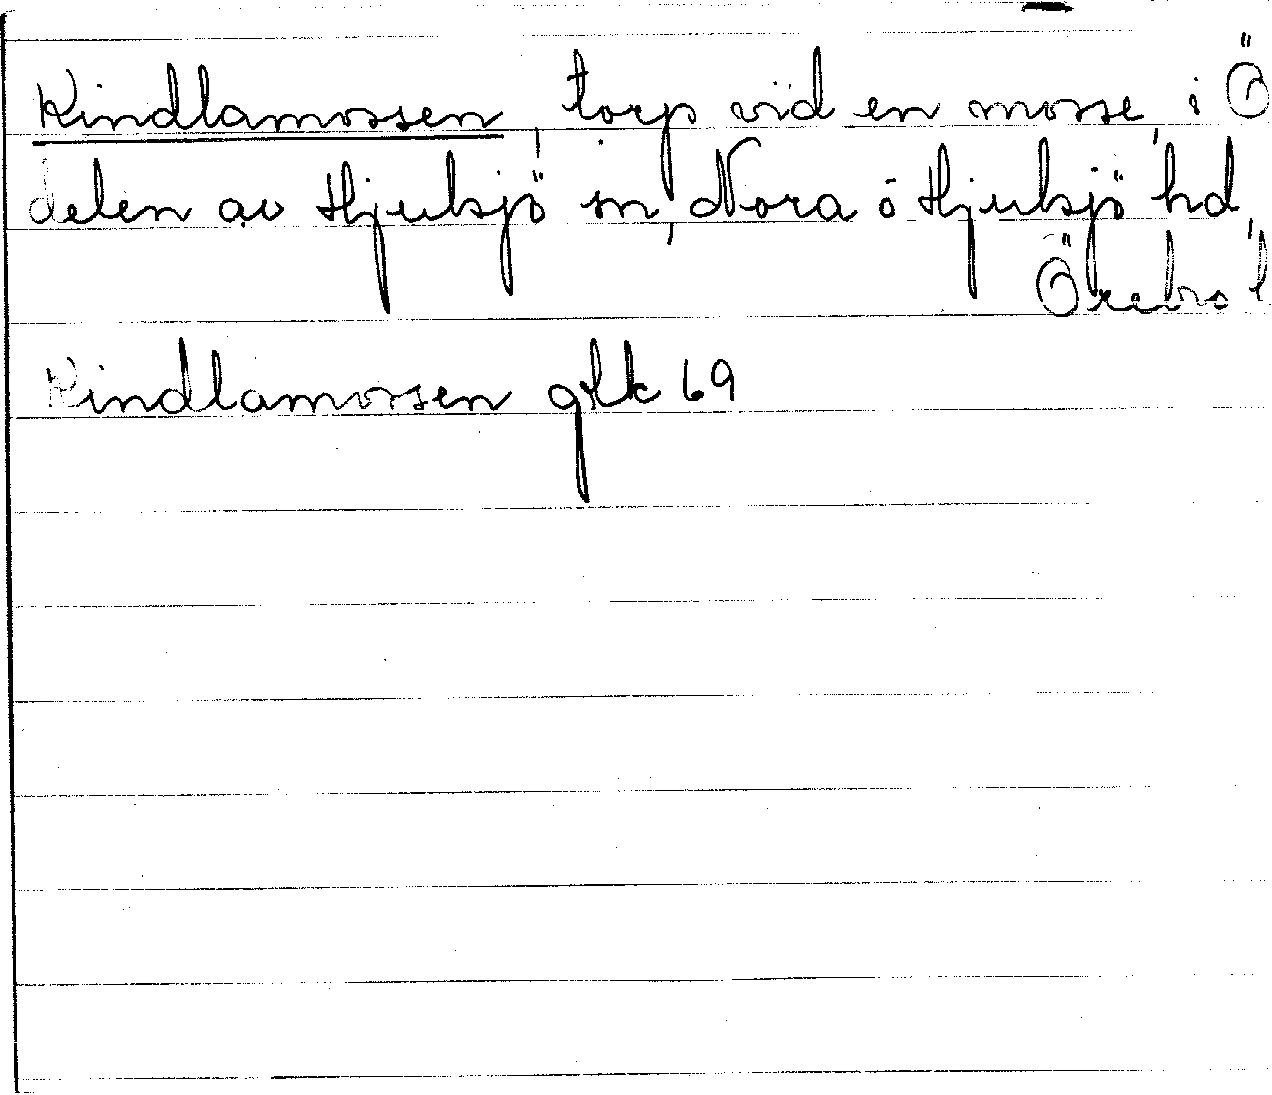 Kindlamossen, torp vid en mosse, i Ö
delen av Hjulsjö sn, Nora o Hjulsjö hd,
Örebro l
Kindlamossen gkk 69